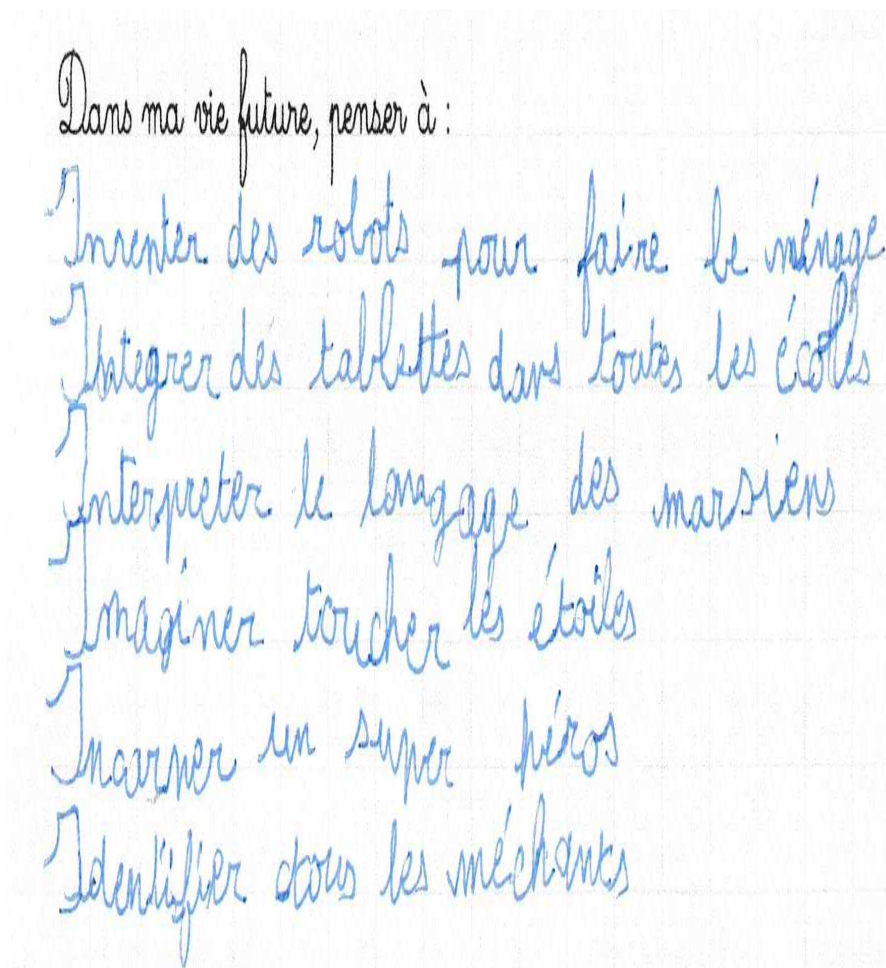 Dans ma vie future, penser à :
Inventer des robots pour faire le ménage
Integrer des tablettes dans toutes les écoles
Interpreter le langage des marsiens
Imaginer toucher les étoiles
Incarner un super héros
Identifier tous les méchants